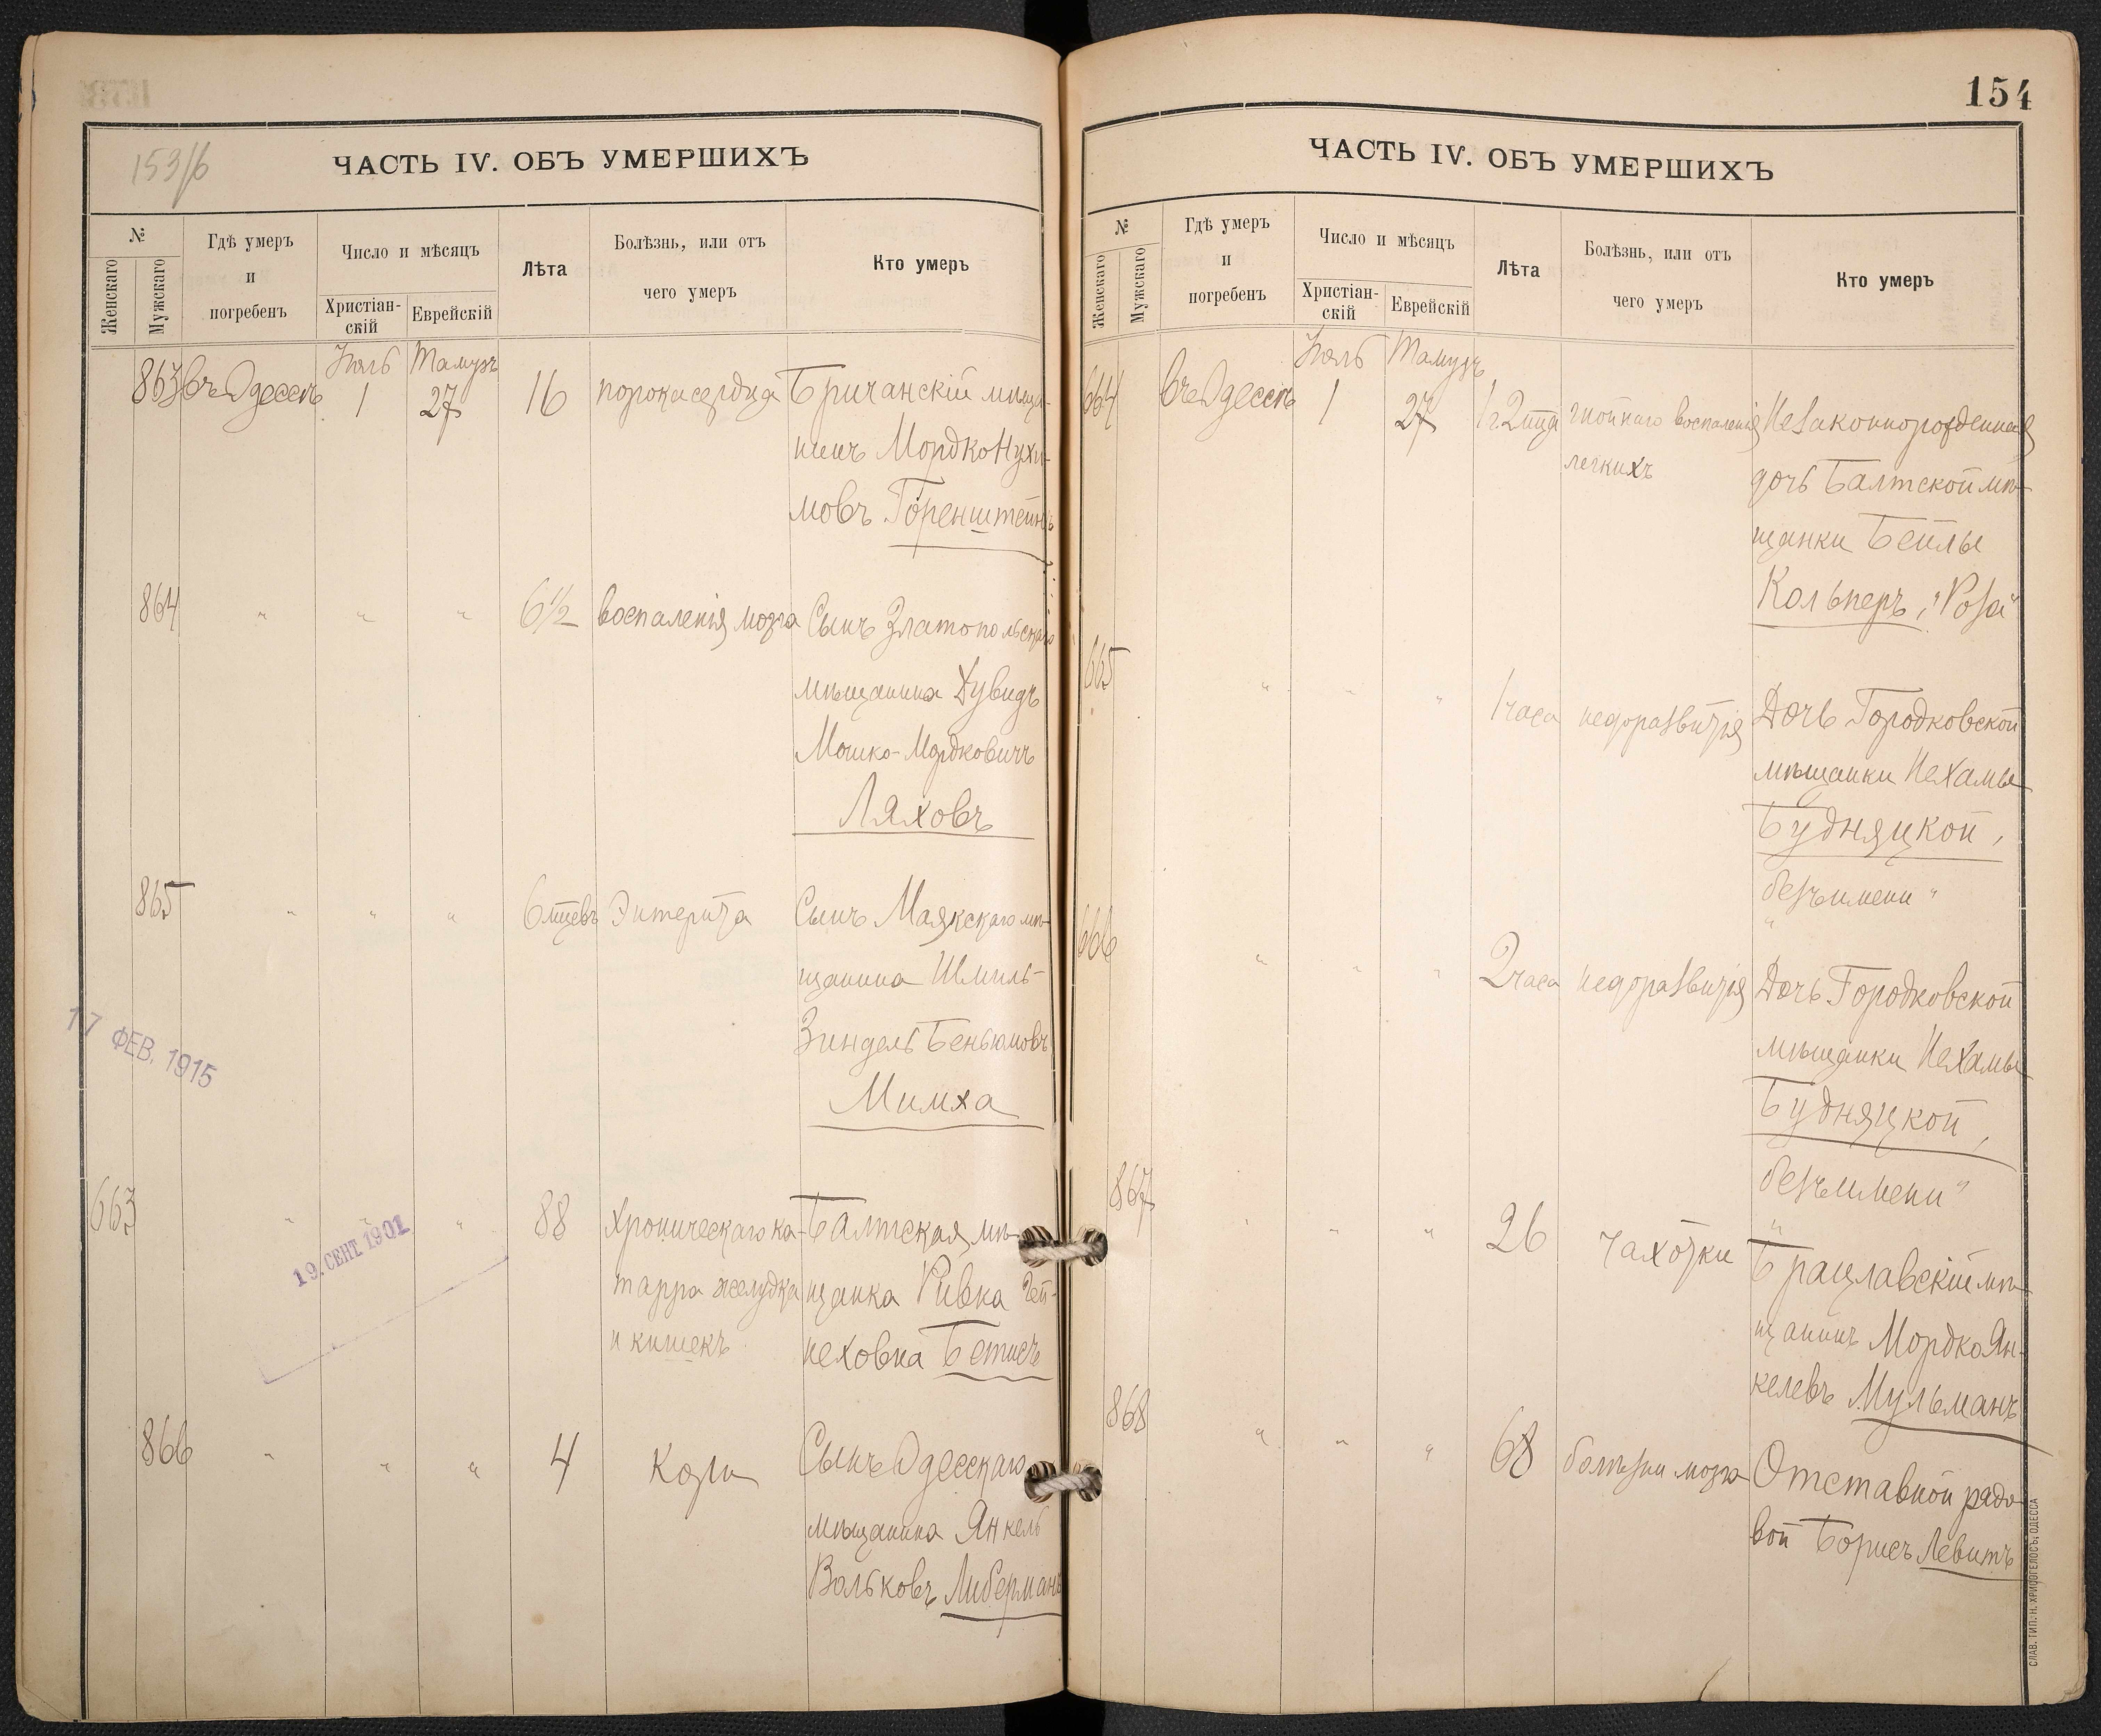 153/б
ЧАСТЬ IV. ОБЪ УМЕРШИХЪ
№
Женскаго
Мужскаго
Гдѣ умеръ
и
погребенъ
Число и мѣсяцъ
Христіан-
скій
Еврейскій
Лѣта
Болѣзнь, или отъ
чего умеръ
Кто умеръ
Іюль Тамузъ
863 въ Одессѣ 1 27 16 порока сердца Бричанскій мѣща-
нинъ Мордко Нухи-
мовъ Горенштейнъ
864 " " " 6 1/2 воспаленія мозга Сынъ Златопольскаго
мѣщанина Дувидъ
Мошко-Мордковичъ
Ляховъ
865 " " " 6 мцевъ Энтерита Сынъ Маякскаго мѣ-
щанина Шмиль-
Зиндель Беньюмовъ
Мимха
17 ФЕВ. 1915
663 " " " 88 хроническаго ка- Балтская мѣ-
тарра желудка щанка Ривка
и кишекъ неховна
19. СЕНТ 1901
866 " " " 4 Кори Сынъ Одесскаго
мѣщанина Янкель
Вольковъ Либерманъ
154
ЧАСТЬ IV. ОБЪ УМЕРШИХЪ
№
Женскаго
Мужскаго
Гдѣ умеръ
и
погребенъ
Число и мѣсяцъ
Христіан-
скій
Еврейскій
Лѣта
Болѣзнь, или отъ
чего умеръ
Кто умеръ
Іюль Тамузъ
664 въ Одессѣ 1 27 1 1/2 мца гнойнаго воспаленія Незаконнорожденная
легкихъ дочь Балтской мѣ-
щанки Бейлы
Кольперъ, "Роза"
665 " " " 1 часа недоразвитія Дочь Городковской
мѣщанки Нехамы
Будняцкой,
"безъимени"
666 " " " 2 часа недоразвитія Дочь Городковской
мѣщанки Нехамы
Будняцкой,
"безъимени"
867 " " " 26 чахотки Брацлавскій мѣ-
щанинъ Мордко Ян-
келевъ Мульманъ
868 " " " 68 болѣзни мозга Отставной рядо-
вой Борисъ Левитъ
СЛАВ. ТИП. Н. ХРИСОГЕЛОСЪ, ОДЕССА